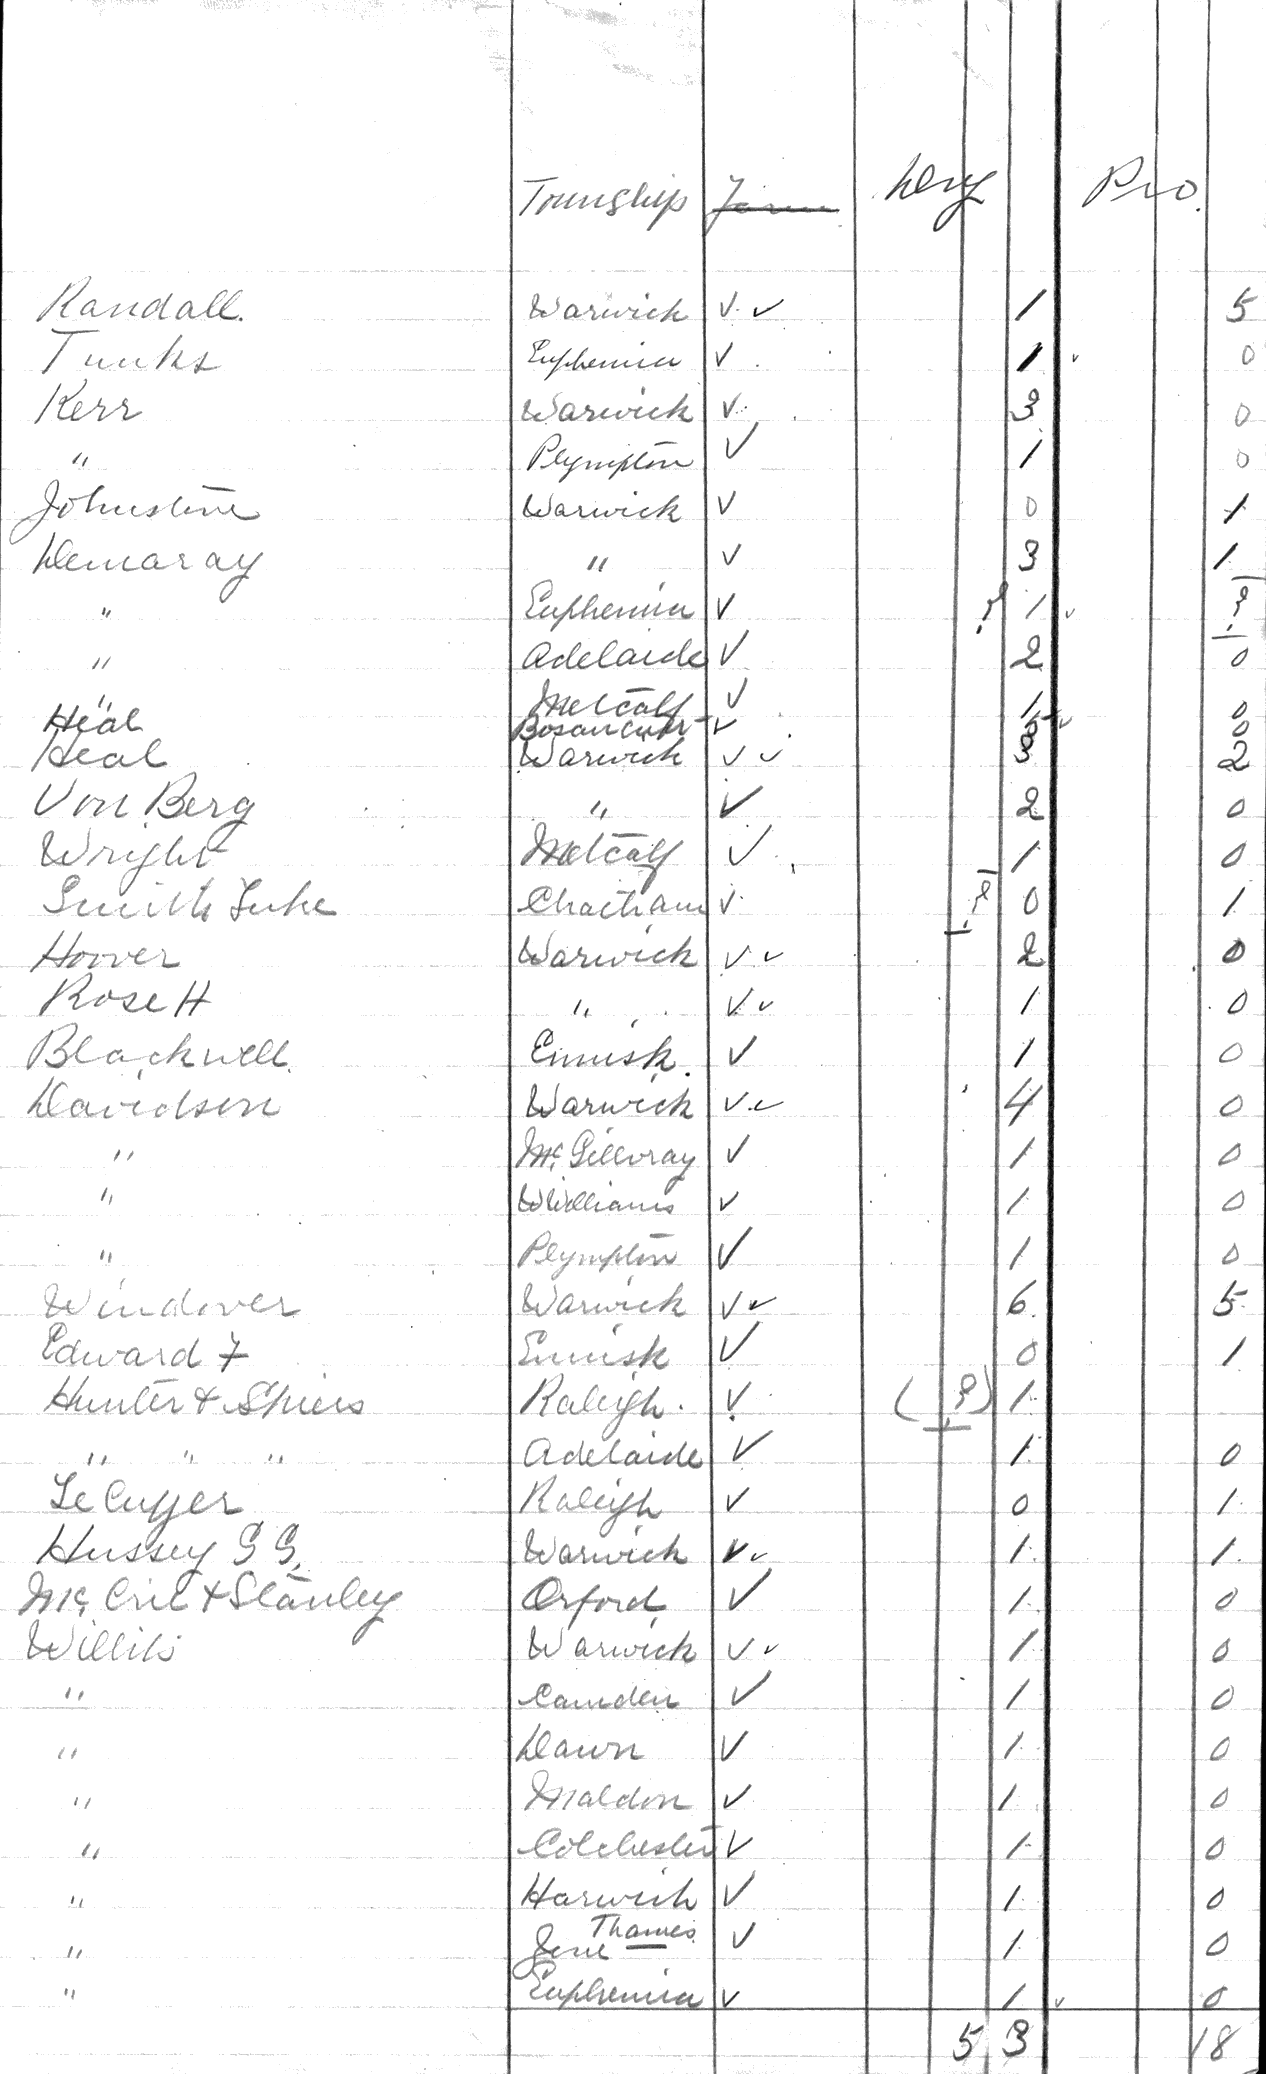 Township Farm Dry Pro.
Randall. Warwick ✓ ✓ 1 5
Tunks Euphemia ✓ 1 ✓ 0
Kerr Warwick ✓ 3 0
" Plympton ✓ 1 0
Johnstone Warwick ✓ 0 1
Demaray " ✓ 3 1
" Euphemia ✓ ? 1 ✓ ?
" Adelaide ✓ 2 0
" Metcalf ✓ 1 0
Heal Bosanquet ✓ 0
Heal Warwick ✓ ✓ 3 2
Von Berg " ✓ 2 0
Wright Metcalf ✓ 1 0
Smith Luke Chatham ✓ ? 0 1
Hoover Warwick ✓ ✓ 2 0
Rose H " ✓ ✓ 1 0
Blackwell Ennisk. ✓ 1 0
Davidson Warwick ✓ ✓ 4 0
" Mc. Gillvray ✓ 1 0
" Williams ✓ 1 0
" Plympton ✓ 1 0
Windover Warwick ✓ ✓ 6 5
Edward F Ennisk ✓ 0 1
Hunter & Spiers Raleigh. ✓ ( ?) 1
" " " Adelaide ✓ 1 0
Le Cuyer Raleigh ✓ 0 1
Hussey G G. Warwick ✓ ✓ 1 1
Mc. Crie & Stanley Orford ✓ 1 0
Willits Warwick ✓ ✓ 1 0
" Camden ✓ 1 0
" Dawn ✓ 1 0
" Maldon ✓ 1 0
" Colchester ✓ 1 0
" Harwich ✓ 1 0
Thames
" ✓ 1 0
" Euphemia ✓ 1 ✓ 0
5 3 18